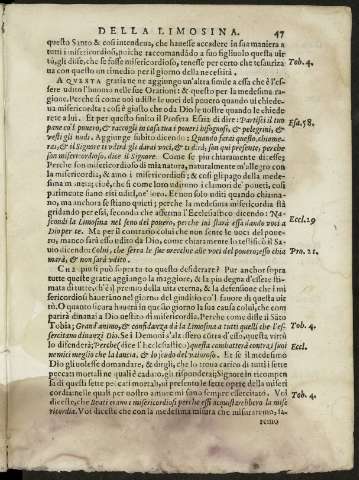 DELLA LIMOSINA. 47
questo Santo & così intendeua, che hauesse accadere in sua maniera a
tutti i misericordiosi, poiche raccomandādo a suo figliuolo questa uir
tù, gli disse, che se fosse misericordioso, tenesse per certo che tesauriza
ua con questo un rimedio per il giorno della necessità. Tob. 4.
A QUESTA gratia te ne aggiungo un'altra simile a essa che è l'es-
sere udito l'huomo nelle sue Orationi: & questo per la medesima ra-
gione. Perche si come uoi udiste le uoci del pouero quando ui chiede-
ua misericordia: così è giusto che oda Dio le uostre quando le chiede
rete a lui. Et per questo finì il Profeta Esaia di dire: Partisci il tuo
pane co'l pouero, & raccogli in casa tua i poueri bisognosi, & peregrini, & Esa. 58.
vesti gli nudi. Aggiunge subito dicendo: Quando farai questo, chiame-
rai, & il Signore ti vdirà gli darai voci, & ti dirà, son qui presente, perche
son misericordioso, dice il Signore. Come se più chiaramente dicesse;
Perche son misericordioso di mia natura, naturalmente m'allegro con
la misericordia, & amo i misericordiosi; & così gli pago della mede-
sima moneta; cioè, che si come loro udirono i clamori de' poueri, così
parimente siano essi uditi, ne' loro. Et non solo uditi quando chiama-
no, ma anchora se stiano quieti; perche la medesima misericordia stà
gridando per essi, secondo che afferma l'Ecclesiastico dicendo: Na-
scondi la Limosina nel seno del pouero, perche iui starà essa dando voci a Eccl. 29
Dio per te. Ma per il contrario colui che non sente le uoci del poue-
ro, manco sarà esso udito da Dio, come chiaramente lo testificò il Sa-
uio dicendo: colui, che serra le sue orecchie alle voci del pouero; esso chia Pro. 21.
marà, & non sarà vdito.
CHE più si può sopra tutto questo desiderare? Pur anchor sopra
tutte queste gratie aggiungo la maggiore, & la più degna d'essere sti-
mata di tutte: ch'è il premio della uita eterna, & la defensione che i mi
sericordiosi haueranno nel giorno del giuditio co'l fauore di questa uir
tù. O quanto sicura hauerà in questo giorno la sua causa colui, che com
parirà dinanzi a Dio uestito di misericordia. Perche come disse il Sāto
Tobia; Grand'animo, & confidanza dà la Limosina a tutti quelli che l'es- Tob. 4.
sercitano dinanzi Dio. Se i Demonij d'altissero cōtra d'esso, questa uirtù
lo difenderà; Perche (dice l'Ecclesiastico) questa combatterà contra i suoi Eccl.
nemici meglio che la lancia, & lo scudo del valoroso. Et se il medesimo
Dio gli uolesse domandare, & dirgli, che lo troua carico di tutti i sette
peccati mortali ne' quali è cadato, gli risponderà; Signore in ricompen
sa di questi sette peccati mortali, ui presento le sette opere della miseri
cordia; nelle quali per uostro amore mi sono sempre esercitato. Voi Tob. 4.
diceste, che Beati erano i misericordiosi perche essi acquistarebbero la mise
ricordia. Voi diceste che con la medesima misura che misuraremo, sa-
remo